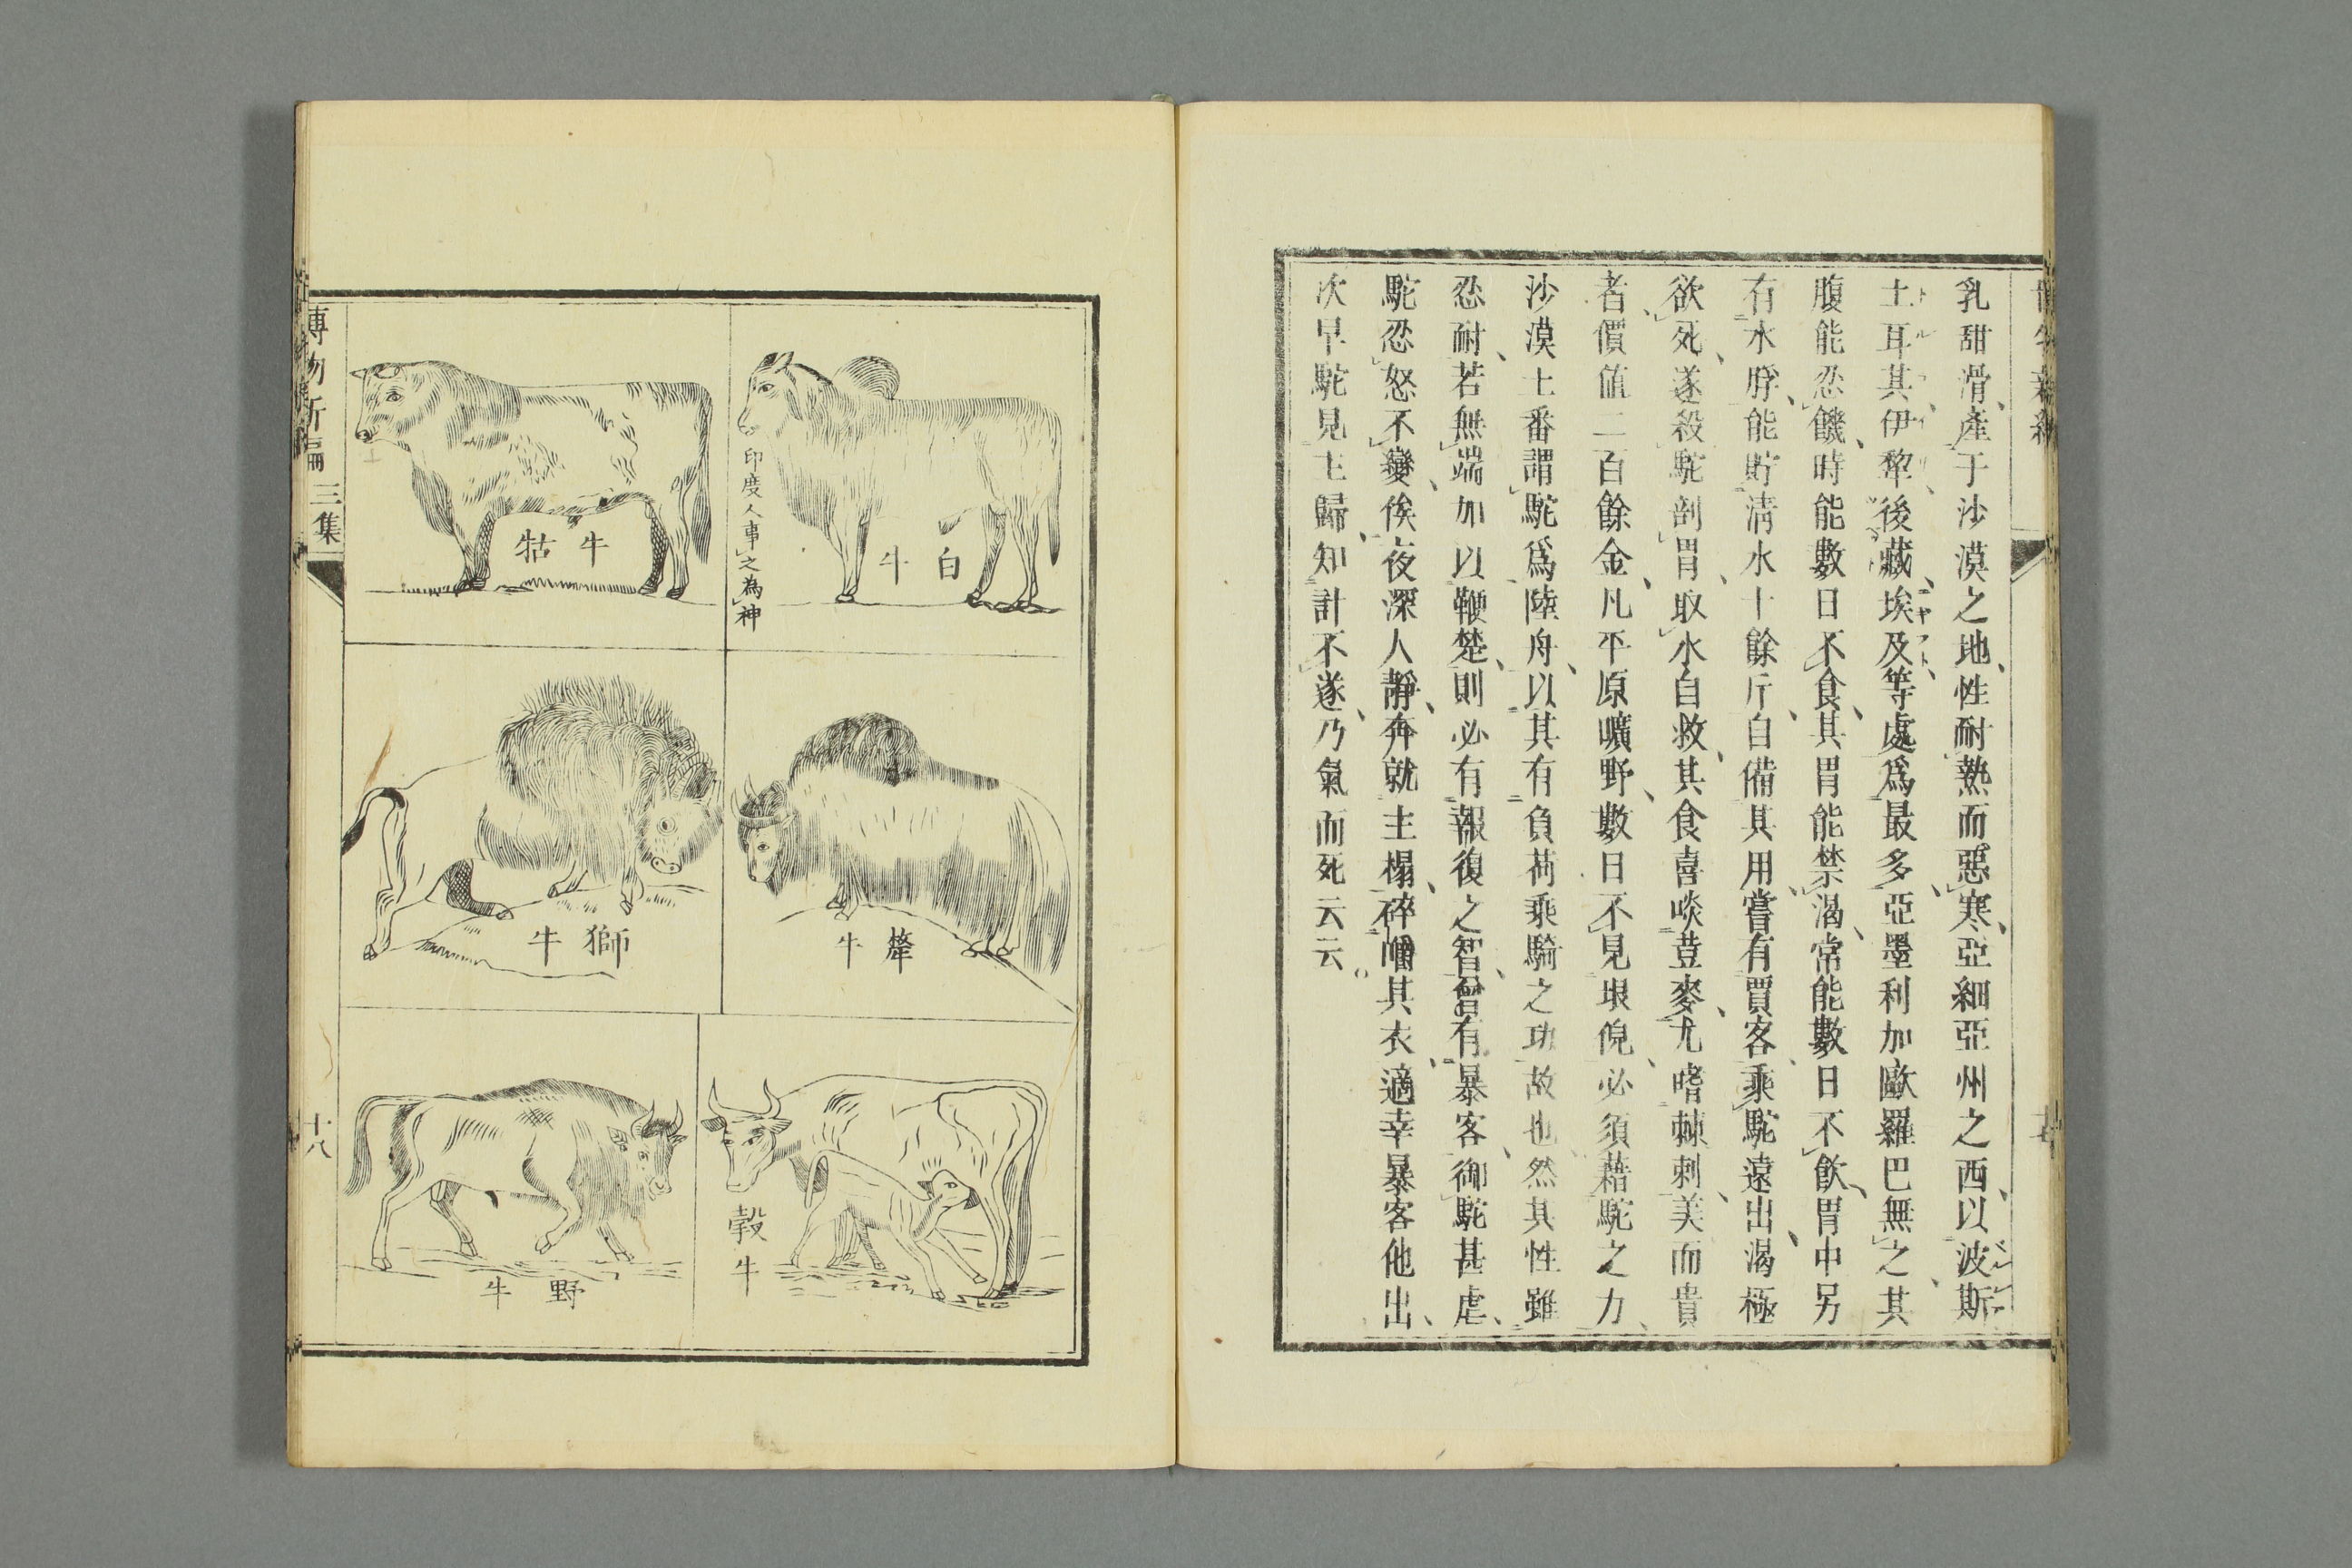 乳甜滑、產于沙漠之地、性耐熱而惡寒、亞細亞州之西、以波斯
土耳其、伊犂、後藏、埃及等處爲最多、亞墨利加歐羅巴無之、其
腹能忍饑、時能數日不食、其胃能禁渴、常能數日不飲、胃中另
有水脬、能貯淸水十餘斤、自備其用、嘗有買客乘駝遠出、渴極
欲死、遂殺駝剖胃、取水自救、其食喜啖荳麥、尤嗜棘刺、美而貴
者價值二百餘金、凡平原曠野、數日不見垠倪、必須藉駝之力、
沙漠土番謂駝爲陸舟、以其有負荷乘騎之功故也、然其性雖
忍耐、若無端加以鞭楚、則必有報復之智、曾有暴客、御駝甚虐、
駝忍怒不變、俟夜深人靜、奔就主榻、碎嚙其衣、適幸暴客他出、
次早駝見主歸、知計不遂、乃氣而死云云。
白牛
印度人事之為神
牛牯
犛牛
獅牛
㝅牛
野牛
博物新編
三集
十八